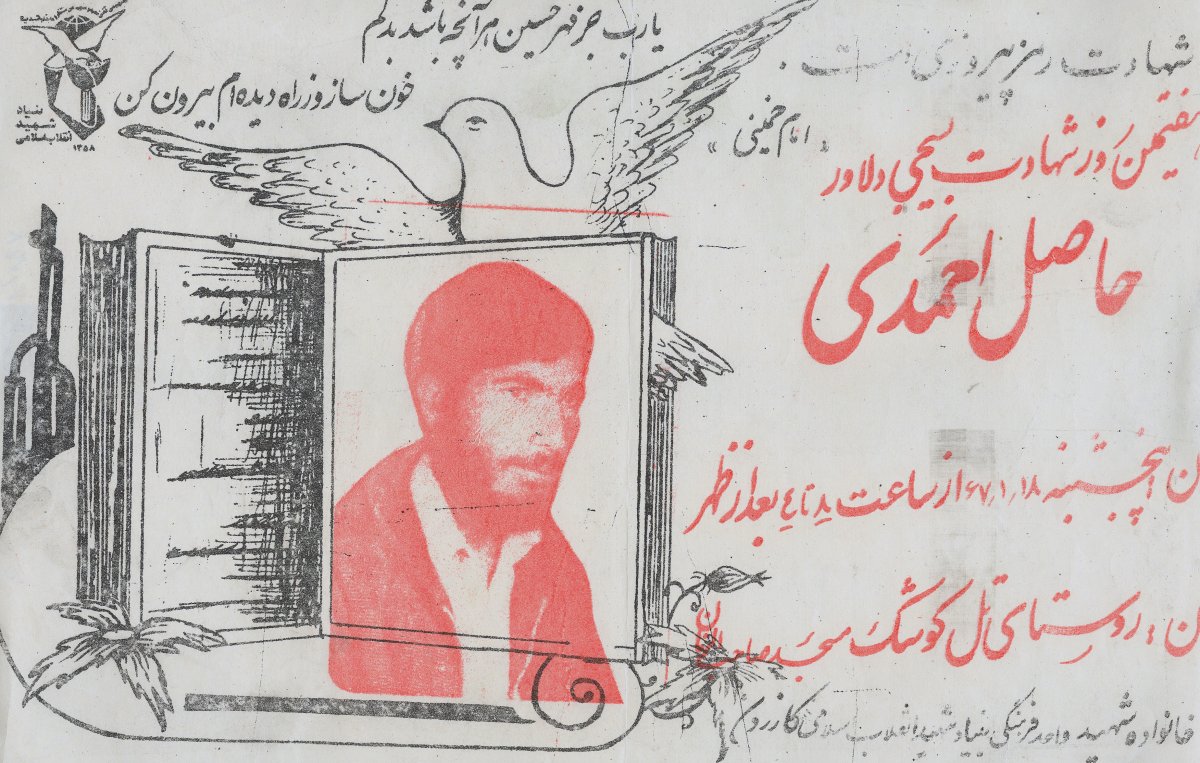 یارب جز مهر حسین هر آنچه باشد بدلم
خون ساز و ز راه دیده ام بیرون کن
بنیاد
شهید
انقلاب اسلامی
۱۳۵۸
شهادت رمز پیروزی است.
«امام خمینی»
هفتمین روز شهادت بسیجی دلاور
حاصل احمدی
ان پنجشنبه ۶۷٫۱٫۱۸ از ساعت ۲ تا ۴ بعد از ظهر
ن : روستای تل کوشک مسجد
خانواده شهید واحد فرهنگی بنیاد شهید انقلاب اسلامی کازرون